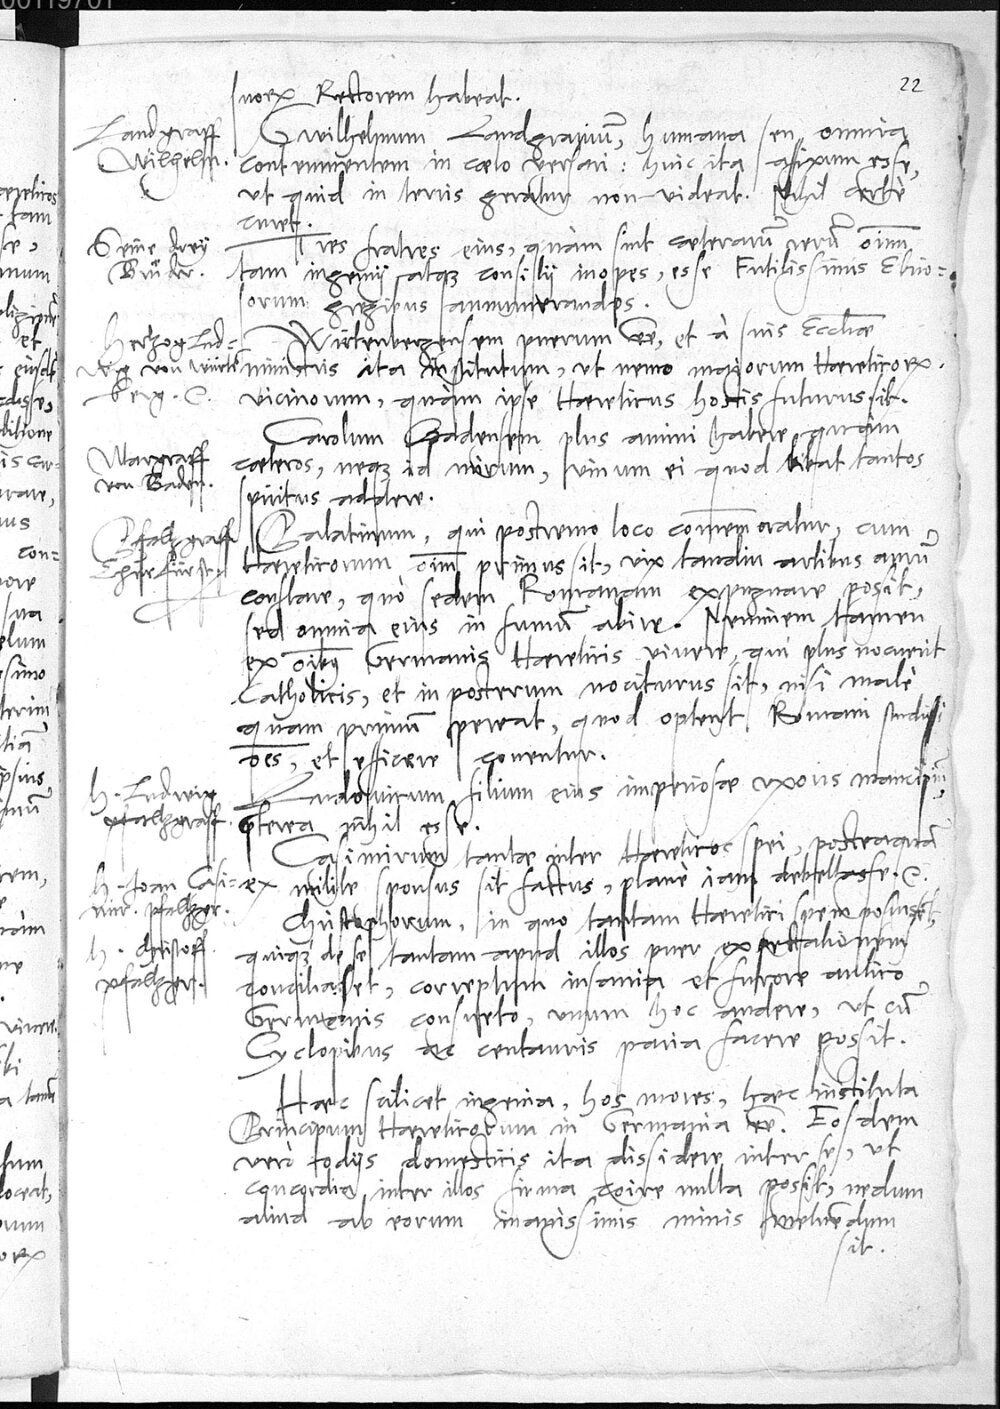 22
suorꝝ Rectorem habeat.
Landgraff
Wilhelm.
Gwilhelmum Landgrauium, humana seu omnia
contemnentem in cælo versari: huic ita afixum esse,
vt quid in terris geratur non videat. Nihil certè
curet.
Seine drey
Brüder.
Tres fratres eius, quàm sint cæterarũ rerũ oim̃
tam ingenij atqꝫ consilij inopes, esse Futilissimis Ebrio-
sorum gregibus annumerandos.
Hertzog Lud-
wig von Würtẽ
berg. C.
Wirtenbergensem puerum eẽ, et à suis Eccliæ
ministris ita institutum, vt nemo maiorum Hæreticorꝝ.
vicinorum, quàm ipse Hæreticus hostis futurus sit.
Margraff
von Baden.
Carolum Badensem plus animi habere quàm
cæteros, neqꝫ id mirum, vinum ei quod bibat tantos
spiritus addere.
Pfaltzgraff
Churfürst
Palatinum, qui postremo loco com̃emoratur, cum
Hæreticorum oim̃ primus sit, vix tandiu artibus aurũ
conflare, quò sedem Romanam expugnare possit,
sed omnia eius in fumũ abire. Neminem tamen
ex oibꝫ Germanis Hæreticis viuere, qui plus nocuerit
Catholicis, et in posterum nociturus sit, nisi malè
quam primũ pereat, quod optent Romani studiosi
oẽs, et efficere conentur.
H. Ludwig
pfaltzgraff.
Ludouicum filium eius imperiosæ vxoris mancipiũ,
pterea nihil esse.
H. Joan Casi-
mir. pfaltzgr.
Casimirum tantæ inter Hæreticos spei, posteaquã
ex milite sponsus sit factus, planè iam debellasse. C.
H. Christoff
pfaltzgr.
Christophorum, in quo tantam Hæretici spem posuissẽt,
quiqꝫ de se tantam apud illos puer expectationem
conciliasset, correptum insania et furore aulico
Germanis consueto, vnum hoc audere, vt cũ
Cyclopibus ac centauris paria facere possit.
Hæc scilicet ingenia, hos mores, hæc instituta
Principum Hæreticorum in Germania eẽ. Eosdem
verò odijs domesticis ita dissidere inter se, vt
concordia inter illos firma coire nulla possit, nedum
aliud ab eorum inanissimis minis metuẽdum
sit.